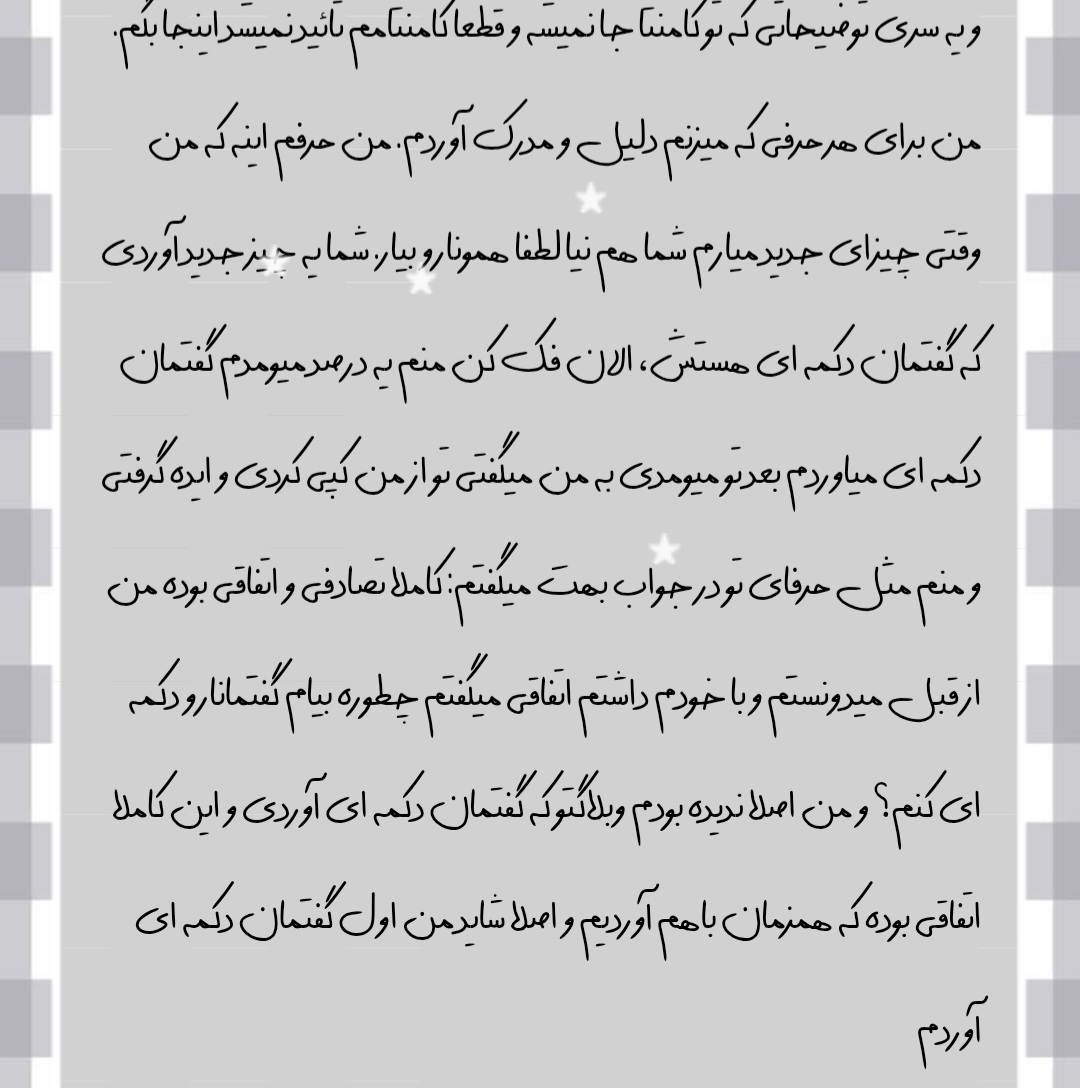 و یه سری توضیحاتی که تو کامنتا جا نمیشه و قطعا کامنتامم تائید نمیشد اینجا بگم.
من برای هر حرفی که میزنم دلیل و مدرک آوردم. من حرفم اینه که من
وقتی چیزای جدید میارم شما هم نیا لطفا همونارو بیار. شما یه چیز جدید آوردی
که گفتمان دکمه ای هستش، الان فک کن منم یه درصد میومدم گفتمان
دکمه ای میاوردم بعد تو میومدی به من میگفتی تو از من کپی کردی و ایده گرفتی
و منم مثل حرفای تو در جواب بهت میگفتم: کاملا تصادفی و اتفاقی بوده من
از قبل میدونستم و با خودم داشتم اتفاقی میگفتم چطوره بیام گفتمانارو دکمه
ای کنم؟ و من اصلا ندیده بودم وبلاگتو که گفتمان دکمه ای آوردی و این کاملا
اتفاقی بوده که همزمان باهم آوردیم و اصلا شاید من اول گفتمان دکمه ای
آوردم